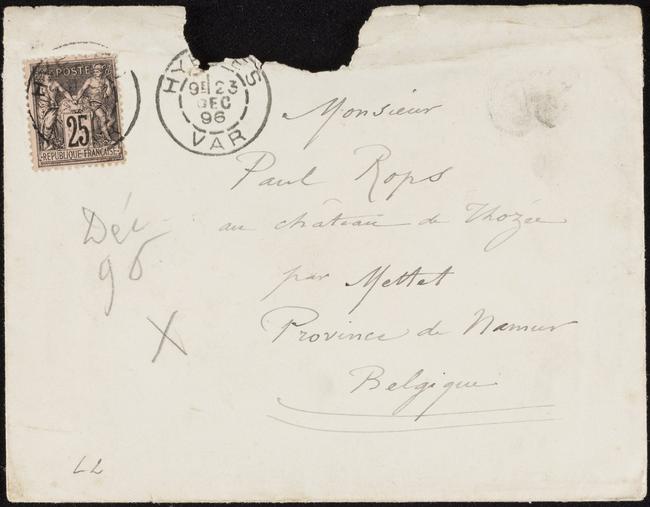 POSTE
25
REPUBLIQUE FRANCAISE
9E 23
DEC
96
VAR
Monsieur
Paul Rops
au château de Thozée
par Mettet
Province de Namur
Belgique
Déc
96
X
LL